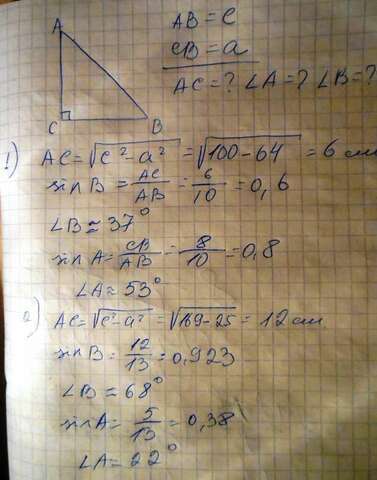 A
C
B
AB = c
CB = a
AC = ? ∠A = ? ∠B = ?
1) AC = √c²-a² = √100-64 = 6 см
sin B = AC/AB = 6/10 = 0,6
∠B ≈ 37°
sin A = CB/AB = 8/10 = 0,8
∠A ≈ 53°
2) AC = √c²-a² = √169-25 = 12 см
sin B = 12/13 = 0,923
∠B = 68°
sin A = 5/13 = 0,38
∠A = 22°